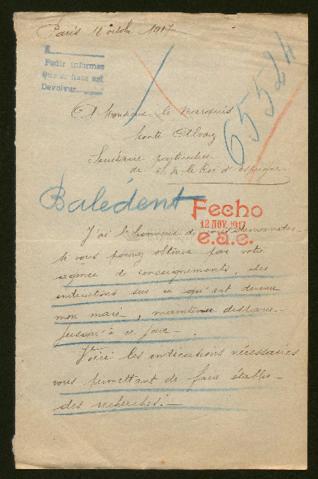 Paris 8 octobre 1917
Pedir informes
Que se haga est
Devolver
65524
A Monsieur le Marquis
Secrétaire particulier
de S. M. le Roi d'Espagne
Balédent
Fecho
12 NOV. 1917
e.a.c.
J'ai l'honneur de vous demander
si vous pouvez obtenir par votre
agence de renseignements, des
instructions sur ce qu'est devenu
mon mari, maintenu disparu
jusqu'à ce jour.
Voici les indications nécessaires
vous permettant de faire établir
des recherches: _